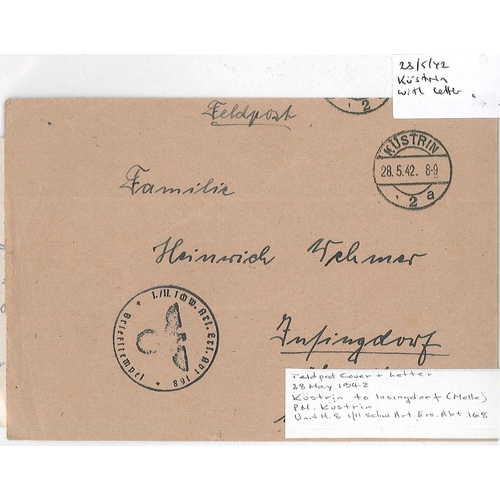 28/5/42
Küstrin
with letter.
Feldpost
2
KÜSTRIN
28.5.42. 8-9
2 a
Familie
Heinrich Wehmer
Insingdorf
* Briefstempel * 1./II. schw. Art. Ers. Abt 168
Feldpost Cover + Letter
28 May 1942
Küstrin to Insingdorf (Melle)
PM. Küstrin
Unit H.S 1/II Schw. Art. Ers. Abt 168